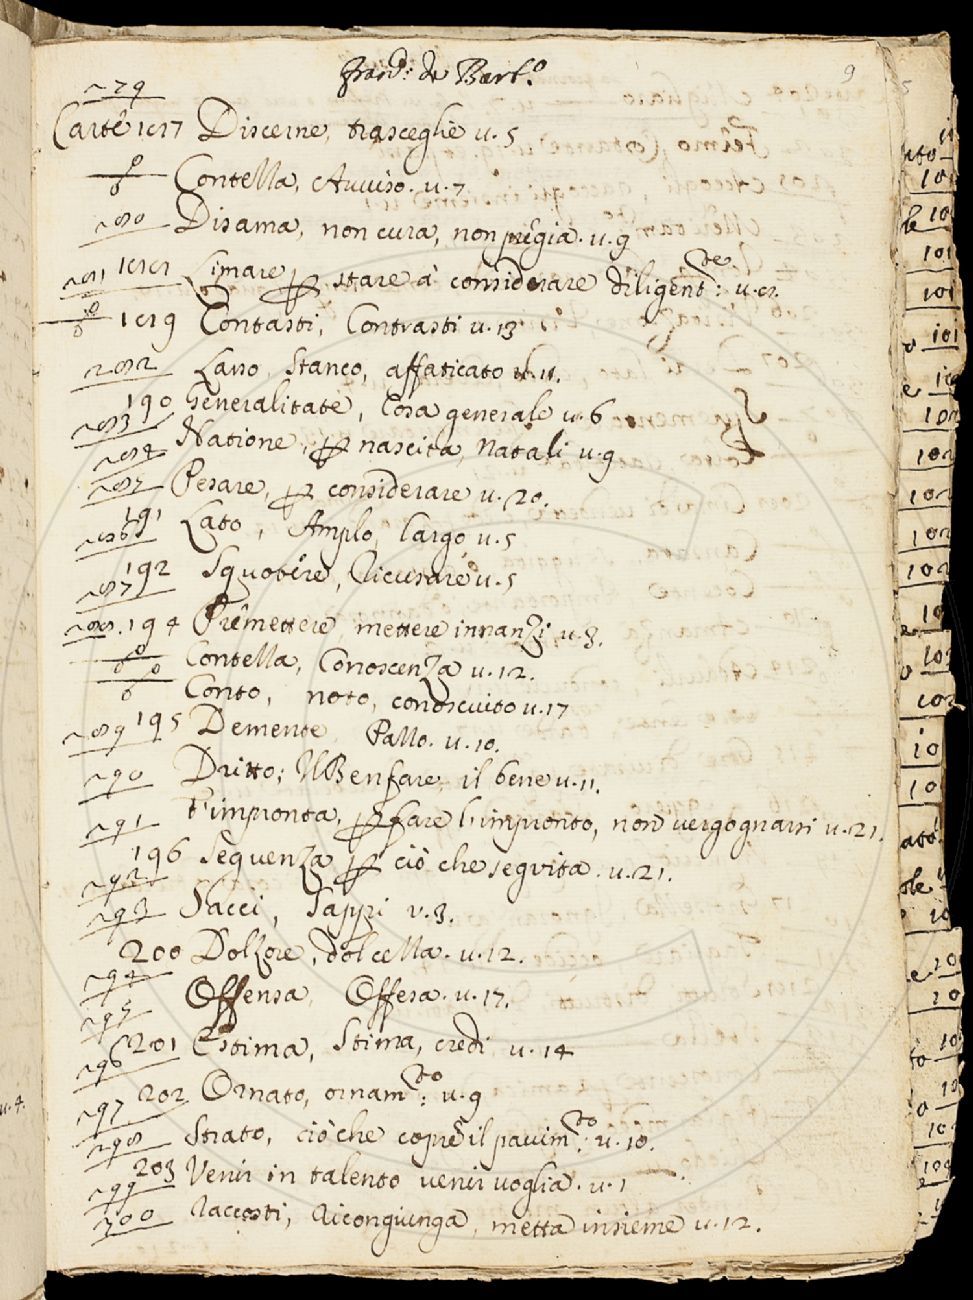 9
279
Carte 187 Discerne, trasceglie v. 5
Contella, Avviso. v. 7
280 Disama, non cura, non pregia. v. 9
281 188 Limare p stare à considerare diligent.te: v. 8.
189 Contasti, Contrasti v. 13
282 Lasso, Stanco, affaticato v. 11.
190 Generalitate, Cosa generale v. 6
283
284 Natione, p nascita, Natali v. 9
285 Pesare, p considerare v. 20.
191
286 Lato, Amplo, largo v. 5
192 Squotere, Ricusare v. 5
287
288. 194 Premettere, mettere innanzi v. 3.
Contella, Conoscenza v. 12.
Conto, noto, conosciuto v. 17
289 195 Demente, Pallo. v. 10.
290 Dritto; Il Ben fare, il bene v. 11.
291 S'impronta, p fare l'impronto, non vergognarsi v. 21.
196 Sequenza p ciò che seguita. v. 21.
292
293 Sacci, Sappi v. 3.
200 Dolzore, dolcella. v. 12.
294
295 Offensa, Offesa. v. 17.
201 Estima, Stima, credi v. 14
296
297 202 Ornato, ornam.to: v. 9
298 Strato, ciò che copre il pavim.to: v. 10.
299 203 Venir in talento venir voglia. v. 1
300 Raccosti, Ricongiunga, metta insieme v. 12.